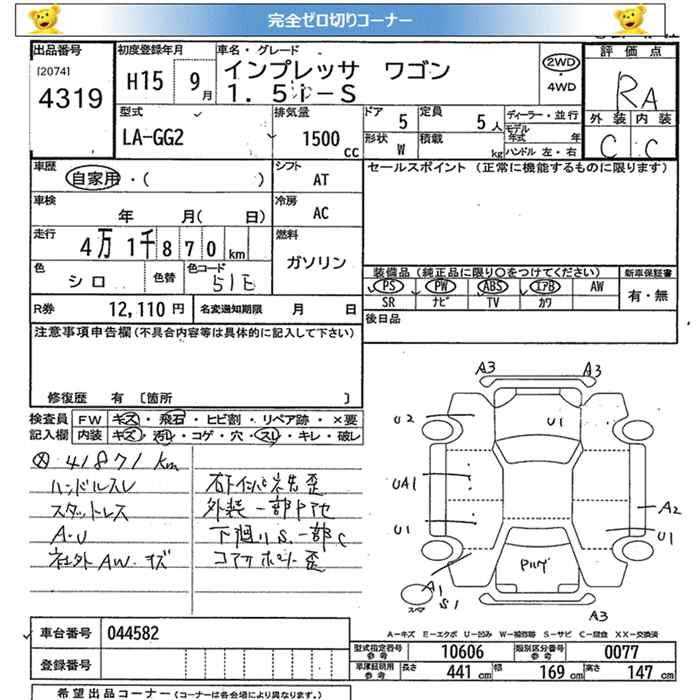 完全ゼロ切りコーナー
出品番号 初度登録年月 車名・グレード 評価点
[2074] 4319 H15 9月 インプレッサ ワゴン 2WD・4WD RA
1.5i-S
型式 排気量 ドア 定員 ディーラー・並行 外装 内装
LA-GG2 1500cc 5 5人 モデル年式 年 C C
形状 W 積載 kg ハンドル 左・右
車歴 シフト セールスポイント (正常に機能するものに限ります)
自家用・( ) AT
車検 冷房
年 月(日) AC
走行 燃料
4万1千870km ガソリン
装備品(純正品に限り○をつけてください) 新車保証書
色 色替 色コード PS PW ABS エアB AW 有・無
シロ 51E SR ナビ TV カワ
R券 12,110円 名変通知期限 月 日 後日品
注意事項申告欄(不具合内容等は具体的に記入して下さい)
修復歴 有 [箇所 ]
検査員 FW キズ・飛石・ヒビ割・リペア跡・×要
記入欄 内装 キズ・汚レ・コゲ・穴・スレ・キレ・破レ
41871km
ハンドルスレ 右下インパネ先歪
スタットレス 外装一部
A・U 下廻りS.一部C
社外AW.キズ コアサポート歪
A3 A3
U2 U1
UA1 A2
U1 U1
A1 S1
スペア
A3
A-キズ E-エクボ U-凹み W-補修跡 S-サビ C-腐食 XX-交換済
車台番号 044582 型式指定番号 参考 10606 類別区分番号 参考 0077
登録番号 車庫証明用 参考 長さ 441cm 幅 169cm 高さ 147cm
希望出品コーナー(コーナーは各会場により異なります。)